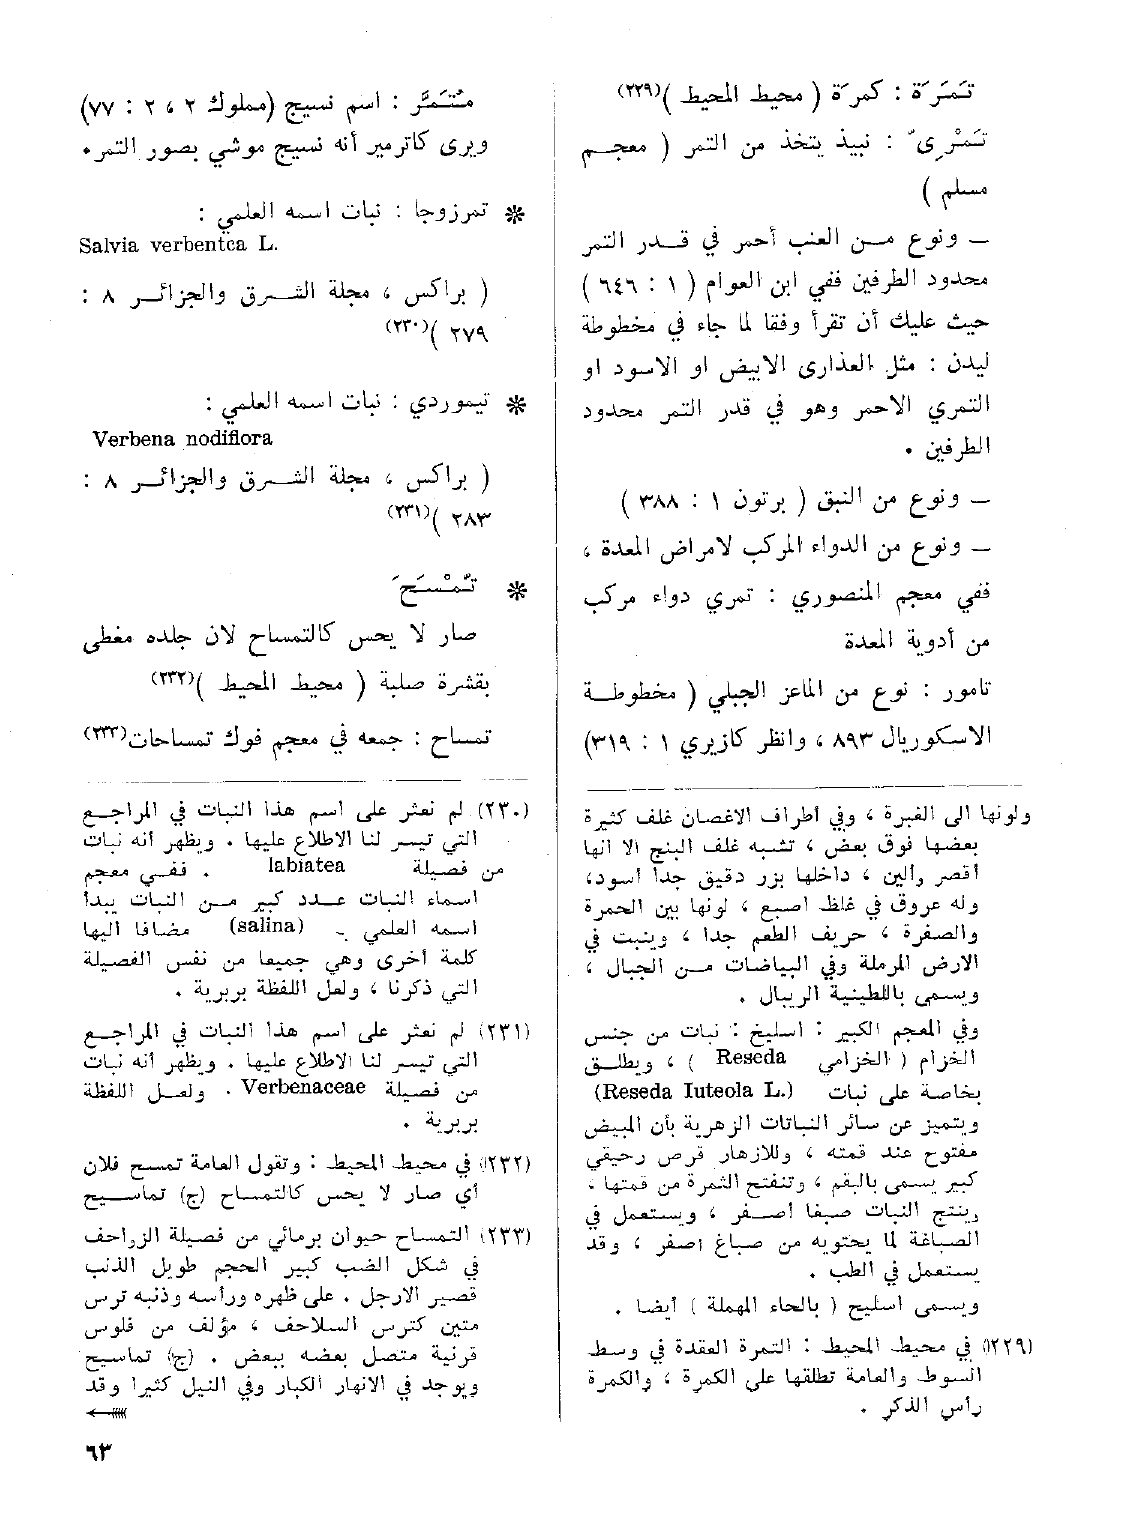 تَمَرَة : كمرة ( محيط المحيط )(٢٢٩)
تَمْرِىّ : نبيذ يتخذ من التمر ( معجم
مسلم )
— ونوع من العنب أحمر في قدر التمر
محدود الطرفين ففي ابن العوام ( ١ : ٦٤٦ )
حيث عليك أن تقرأ وفقا لما جاء في مخطوطة
ليدن : مثل العذارى الابيض او الاسود او
التمري الاحمر وهو في قدر التمر محدود
الطرفين .
— ونوع من النبق ( برتون ١ : ٣٨٨ )
— ونوع من الدواء المركب لامراض المعدة ،
ففي معجم المنصوري : تمري دواء مركب
من أدوية المعدة
تامور : نوع من الماعز الجبلي ( مخطوطة
الاسكوريال ٨٩٣ ، وانظر كازيري ١ : ٣١٩)
ولونها الى الغبرة ، وفي أطراف الاغصان غلف كثيرة
بعضها فوق بعض ، تشبه غلف البنج الا انها
أقصر وألين ، داخلها بزر دقيق جدا أسود،
وله عروق في غلظ اصبع ، لونها بين الحمرة
والصفرة ، حريف الطعم جدا ، وينبت في
الارض المرملة وفي البياضات من الجبال ،
ويسمى باللطينية الريبال .
وفي المعجم الكبير : اسليخ : نبات من جنس
الخزام ( الخزامي Reseda ) ، ويطلق
بخاصة على نبات (Reseda Iuteola L.)
ويتميز عن سائر النباتات الزهرية بأن المبيض
مفتوح عند قمته ، وللازهار قرص رحيقي
كبير يسمى بالبقم ، وتنفتح الثمرة من قمتها ،
ينتج النبات صبغا أصفر ، ويستعمل في
الصباغة لما يحتويه من صباغ اصفر ، وقد
يستعمل في الطب .
ويسمى اسليح ( بالحاء المهملة ) أيضا .
(٢٢٩) في محيط المحيط : التمرة العقدة في وسط
السوط والعامة تطلقها على الكمرة ، والكمرة
رأس الذكر .
مُتَمَّر : اسم نسيج (مملوك ٢ ، ٢ : ٧٧)
ويرى كاترمير أنه نسيج موشي بصور التمر.
* تمرزوجا : نبات اسمه العلمي :
Salvia verbentca L.
( براكس ، مجلة الشرق والجزائر ٨ :
٢٧٩ )(٢٣٠)
* تيموردي : نبات اسمه العلمي :
Verbena nodiflora
( براكس ، مجلة الشرق والجزائر ٨ :
٢٨٣ )(٢٣١)
* تَمْسَحَ
صار لا يحس كالتمساح لان جلده مغطى
بقشرة صلبة ( محيط المحيط )(٢٣٢)
تمساح : جمعه في معجم فوك تمساحات(٢٣٣)
(٢٣٠) لم نعثر على اسم هذا النبات في المراجع
التي تيسر لنا الاطلاع عليها . ويظهر أنه نبات
من فصيلة labiatea . ففي معجم
اسماء النبات عدد كبير من النبات يبدأ
اسمه العلمي بـ (salina) مضافا اليها
كلمة أخرى وهي جميعا من نفس الفصيلة
التي ذكرنا ، ولعل اللفظة بربرية .
(٢٣١) لم نعثر على اسم هذا النبات في المراجع
التي تيسر لنا الاطلاع عليها . ويظهر أنه نبات
من فصيلة Verbenaceae . ولعل اللفظة
بربرية .
(٢٣٢) في محيط المحيط : وتقول العامة تمسح فلان
أي صار لا يحس كالتمساح (ج) تماسيح
(٢٣٣) التمساح حيوان برمائي من فصيلة الزواحف
في شكل الضب كبير الحجم طويل الذنب
قصير الارجل . على ظهره ورأسه وذنبه ترس
متين كترس السلاحف ، مؤلف من فلوس
قرنية متصل بعضه ببعض . (ج) تماسيح
ويوجد في الانهار الكبار وفي النيل كثيرا وقد
٦٣